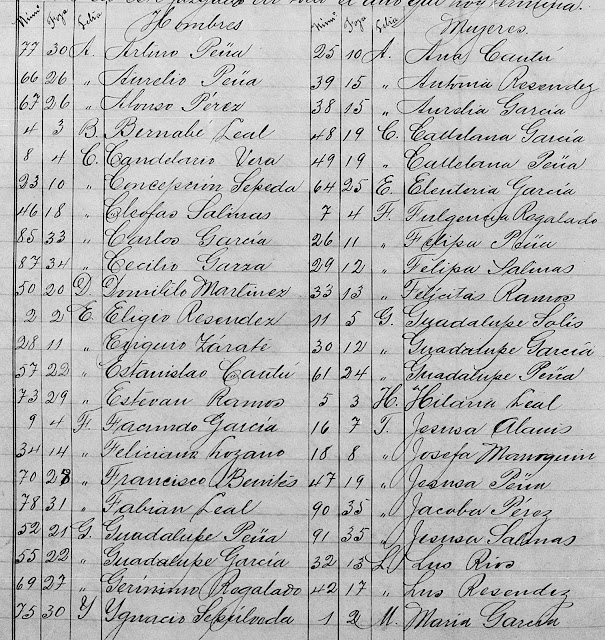 juzgado en todo el año que hoy termina.
Núm. Foja Letra Hombres
77 30 A. Arturo Peña
66 26 " Aurelio Peña
67 26 " Alonso Pérez
4 3 B. Bernabé Leal
8 4 C. Candelario Vera
23 10 " Concepción Sepeda
46 18 " Cleofas Salinas
85 33 " Carlos García
87 34 " Cecilio Garza
50 20 D. Domitilo Martinez
2 2 E. Eligio Resendez
28 11 " Eugenio Zárate
57 22 " Estanislao Cantú
73 29 " Estevan Ramos
9 4 F. Facundo García
34 14 " Feliciano Lozano
70 28 " Francisco Benítes
78 31 " Fabian Leal
52 21 G. Guadalupe Peña
55 22 " Guadalupe García
69 27 " Gerónimo Regalado
75 30 Y Ygnacio Sepúlveda
Núm. Foja Letra Mujeres.
25 10 A. Ana Cantú
39 15 " Antonia Resendez
38 15 " Aurelia García
48 19 C. Calletana García
49 19 " Calletana Peña
64 25 E. Eleuteria García
7 4 F. Fulgencia Regalado
26 11 " Felipa Peña
29 12 " Felipa Salinas
33 13 " Felicitas Ramos
11 5 G. Guadalupe Solis
30 12 " Guadalupe García
61 24 " Guadalupe Peña
5 3 H. Hilaria Leal
16 7 J. Jesusa Alanis
18 8 " Josefa Marroquin
47 19 " Jesusa Peña
90 35 " Jacoba Pérez
91 35 " Jesusa Salinas
32 13 L. Luz Rios
42 17 " Luz Resendez
1 2 M. María García